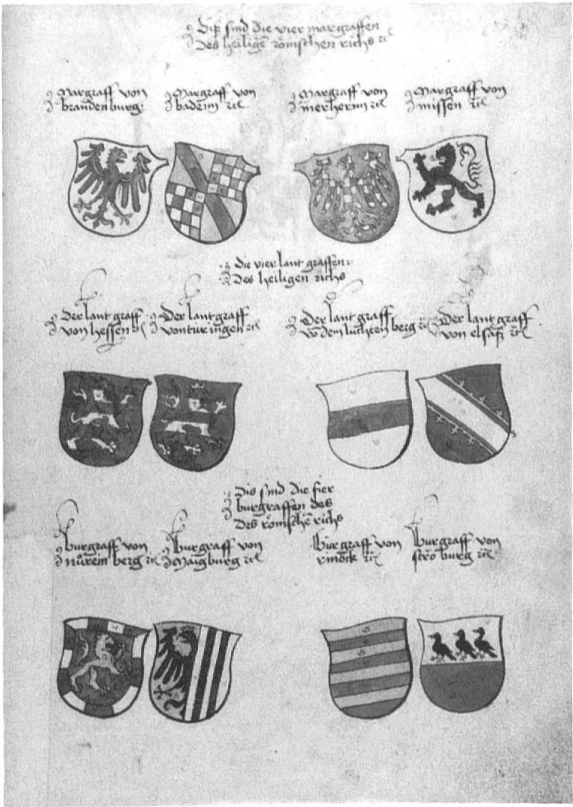 Diß sind die vier margraffen
des heilige römschen richs
Margraff von
brandenburg
Margraff von
badenn
Margraff von
merhernn
Margraff von
missen
die vier lant graffen
des heiligen richs
Der lant graff
von hessen
Der lantgraff
von turingen
Der lant graff
berg
Der lant graff
von elsaß
Dis sind die fier
burgraffen des
des römsche richs
burgraff von
nurein berg
burgraff von
Maigburg
burgraff von
rineck
burgraff von
stro burg